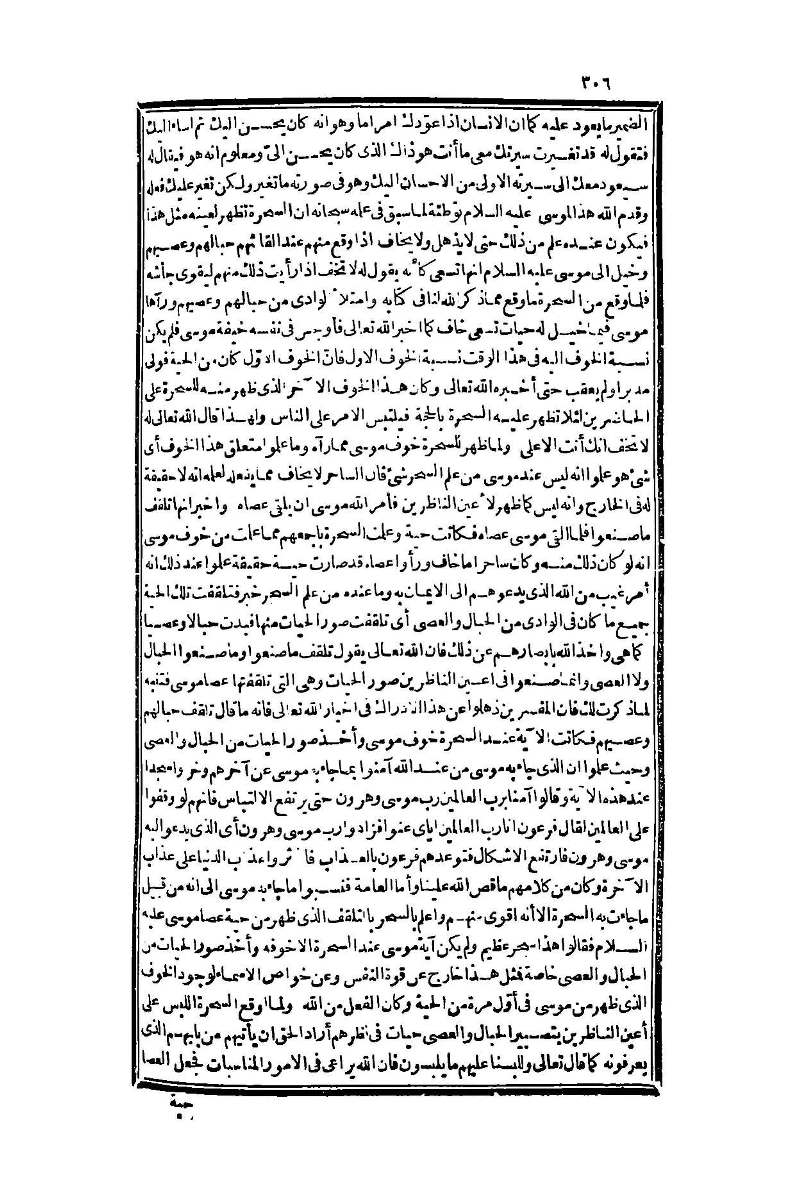 ٣٠٦
الضمير ما يعود عليه كما ان الانسان اذا عودك امرا ما وهو انه كان يحسن اليك ثم اساء اليك
فتقول له قد تغيرت سيرتك معى ما أنت هو ذاك الذى كان يحسن الى ومعلوم انه هو فيقال له
سيعود معك الى سيرته الاولى من الاحسان اليك وهو فى صورته ما تغير ولكن تغير عليك فعله
وقدم الله هذا لموسى عليه السلام توطئة لما سبق فى علمه سبحانه ان السحرة تظهر لعينه مثل هذا
فيكون عنده علم من ذلك حتى لا يذهل ولا يخاف اذا وقع منهم عند القائهم حبالهم وعصيهم
وخيل الى موسى عليه السلام انها تسعى كأنه يقول له لا تخف اذا رأيت ذلك منهم ليقوى جأشه
فلما وقع من السحرة ما وقع مما ذكر الله لنا فى كتابه وامتلا الوادى من حبالهم وعصيهم ورآها
موسى فيما خيل له حيات تسعى خاف كما اخبر الله تعالى فأوجس فى نفسه خيفة موسى فلم يكن
نسبة الخوف اليه فى هذا الوقت نسبة الخوف الاول فان الخوف الاول كان من الحية فولى
مدبرا ولم يعقب حتى أخبره الله تعالى وكان هذا الخوف الا خر الذى ظهر منه للسحرة على
الحاضرين لئلا تظهر عليه السحرة بالحجة فيلتبس الامر على الناس ولهذا قال الله تعالى له
لا تخف انك أنت الاعلى ولما ظهر للسحرة خوف موسى مما رآه وما علموا متعلق هذا الخوف أى
شئ هو علموا انه ليس عند موسى من علم السحر شئ فان الساحر لا يخاف مما يفعله لعلمه انه لا حقيقة
له فى الخارج وانه ليس كما ظهر لأعين الناظرين فأمر الله موسى ان يلقى عصاه واخبر انها تلقف
ما صنعوا فلما القى موسى عصاه فكانت حية وعلمت السحرة بأجمعهم مما علمت من خوف موسى
انه لو كان ذلك منه وكان ساحرا ما خاف ورأوا عصاه قد صارت حية حقيقة علموا عند ذلك انه
أمر غيب من الله الذى يدعوهم الى الايمان به وما عنده من علم السحر خبر فتلقفت تلك الحية
جميع ما كان فى الوادى من الحبال والعصى أى تلقفت صور الحيات منها فبدت حبالا وعصيا
كما هى واخذ الله بابصارهم عن ذلك فان الله تعالى يقول تلقف ما صنعوا وما صنعوا الحبال
ولا العصى وانما صنعوا فى اعين الناظرين صور الحيات وهى التى تلقفتها عصا موسى فتنبه
لما ذكرت لك فان المفسرين ذهلوا عن هذا الادراك فى اخبار الله تعالى فانه ما قال تلقف حبالهم
وعصيهم فكانت الا ية عند السحرة خوف موسى وأخذ صور الحيات من الحبال والعصى
وحيث علموا ان الذى جاء به موسى من عند الله آمنوا بما جاء به موسى عن آخرهم وخروا سجدا
عند هذه الا ية وقالوا آمنا برب العالمين رب موسى وهرون حتى يرتفع الالتباس فانهم لو وقفوا
على العالمين لقال فرعون انا رب العالمين اياى عنوا فزادوا رب موسى وهرون أى الذى يدعو اليه
موسى وهرون فارتفع الاشكال فتوعدهم فرعون بالعذاب فا ثروا عذاب الدنيا على عذاب
الا خرة وكان من كلامهم ما قص الله علينا وأما العامة فنسبوا ما جاء به موسى الى انه من قبيل
ما جاءت به السحرة الا أنه اقوى منهم واعلم بالسحر بالتلقف الذى ظهر من حية عصا موسى عليه
السلام فقالوا هذا سحر عظيم ولم يكن آية موسى عند السحرة الا خوفه وأخذ صور الحيات من
الحبال والعصى خاصة فمثل هذا خارج عن قوة النفس وعن خواص الاسماء لوجود الخوف
الذى ظهر من موسى فى أول مرة من الحية وكان الفعل من الله ولما اوقع السحرة اللبس على
أعين الناظرين بتصيير الحبال والعصى حيات فى نظرهم أراد الحق ان يأتيهم من بابهم الذى
يعرفونه كما قال تعالى وللبسنا عليهم ما يلبسون فان الله يراعى فى الامور المناسبات فجعل العصا
حية